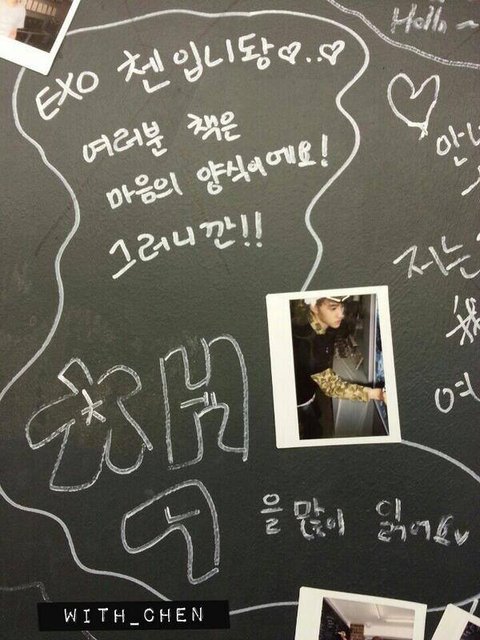 EXO 첸입니당♡..♡
여러분 책은
마음의 양식이에요!
그러니깐!!
책
을 많이 읽어요♥
Hello~
♡
안녕
저는
여
WITH_CHEN